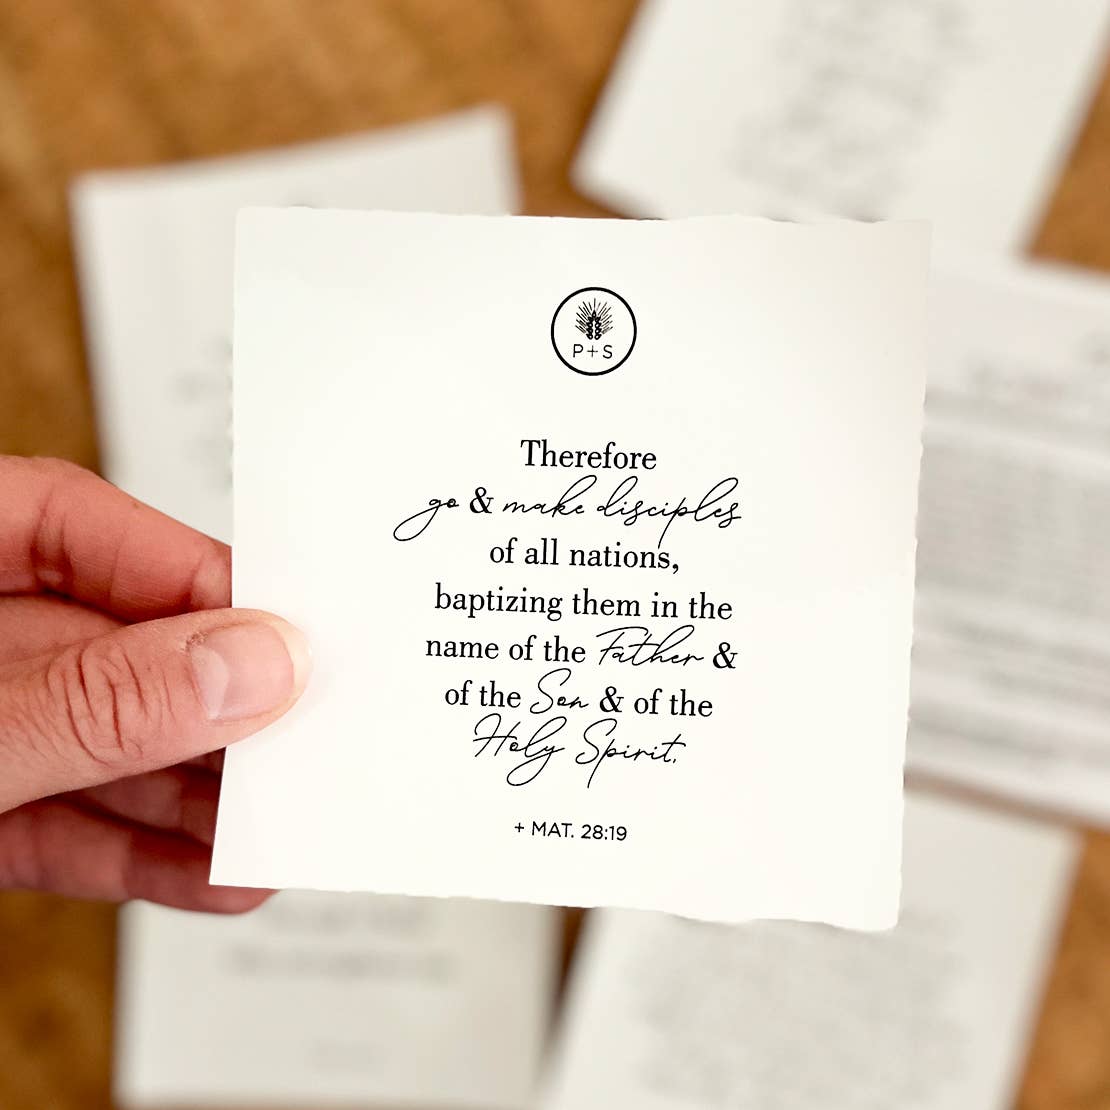 P+S
Therefore
go & make disciples
of all nations,
baptizing them in the
name of the Father &
of the Son & of the
Holy Spirit.
+ MAT. 28:19